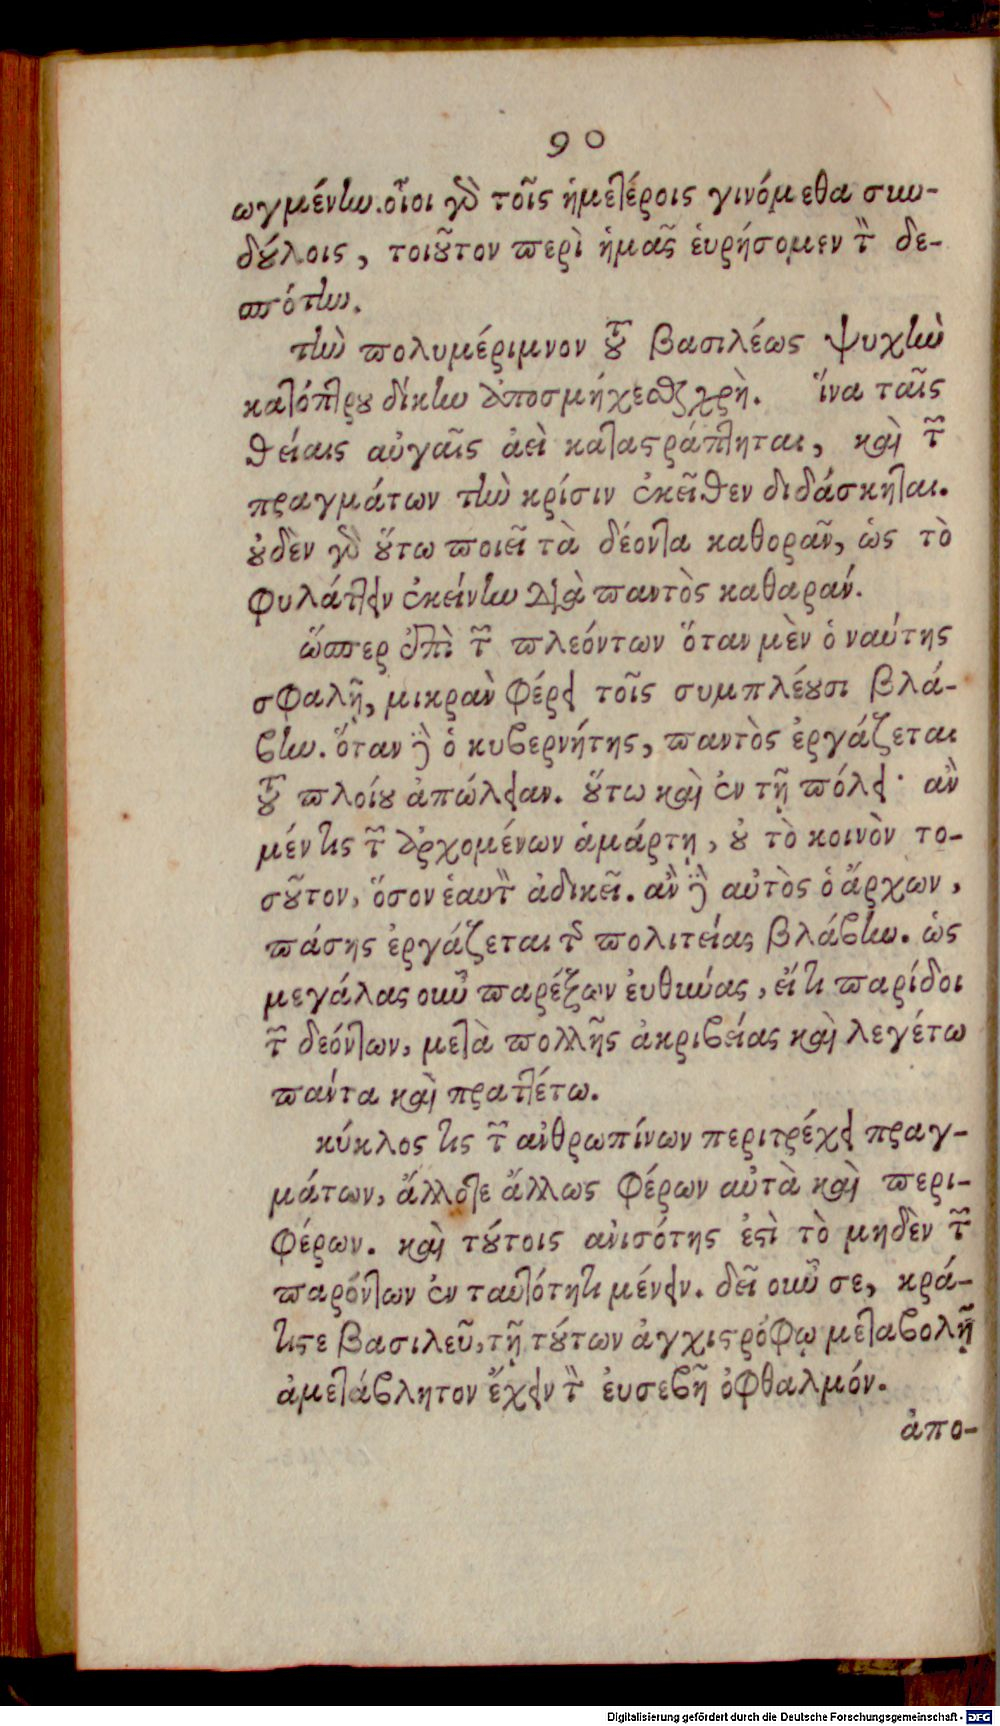 90
ωγμένην. οἷοι γὰρ τοῖς ἡμετέροις γινόμεθα συν-
δούλοις, τοιοῦτον περὶ ἡμᾶς εὑρήσομεν τὸν δε-
σπότην.
τὴν πολυμέριμνον τοῦ βασιλέως ψυχὴν
κατόπτρου δίκην ἀποσμήχεσθαι χρὴ. ἵνα ταῖς
θείαις αὐγαῖς ἀεὶ καταστράπτηται, καὶ τῶν
πραγμάτων τὴν κρίσιν ἐκεῖθεν διδάσκηται.
οὐδὲν γὰρ οὕτω ποιεῖ τὰ δέοντα καθορᾶν, ὡς τὸ
φυλάττειν ἐκείνην διὰ παντὸς καθαράν.
ὥσπερ ἐπὶ τῶν πλεόντων ὅταν μὲν ὁ ναύτης
σφαλῇ, μικρὰν φέρει τοῖς συμπλέουσι βλά-
βην. ὅταν δὲ ὁ κυβερνήτης, παντὸς ἐργάζεται
τοῦ πλοίου ἀπώλειαν. οὕτω καὶ ἐν τῇ πόλει· ἂν
μέν τις τῶν ἀρχομένων ἁμάρτῃ, οὐ τὸ κοινὸν το-
σοῦτον, ὅσον ἑαυτὸν ἀδικεῖ. ἂν δὲ αὐτὸς ὁ ἄρχων,
πάσης ἐργάζεται τῆς πολιτείας βλάβην. ὡς
μεγάλας οὖν παρέξων εὐθύνας, εἴ τι παρίδοι
τῶν δεόντων, μετὰ πολλῆς ἀκριβείας καὶ λεγέτω
πάντα καὶ πραττέτω.
κύκλος τις τῶν ἀνθρωπίνων περιτρέχει πραγ-
μάτων, ἄλλοτε ἄλλως φέρων αὐτὰ καὶ περι-
φέρων. καὶ τούτοις ἀνισότης ἐστὶ τὸ μηδὲν τῶν
παρόντων ἐν ταυτότητι μένειν. δεῖ οὖν σε, κρά-
τιστε βασιλεῦ, τῇ τούτων ἀγχιστρόφῳ μεταβολῇ
ἀμετάβλητον ἔχειν τὸν εὐσεβῆ ὀφθαλμόν.
ἀπο-
Digitalisierung gefördert durch die Deutsche Forschungsgemeinschaft - DFG